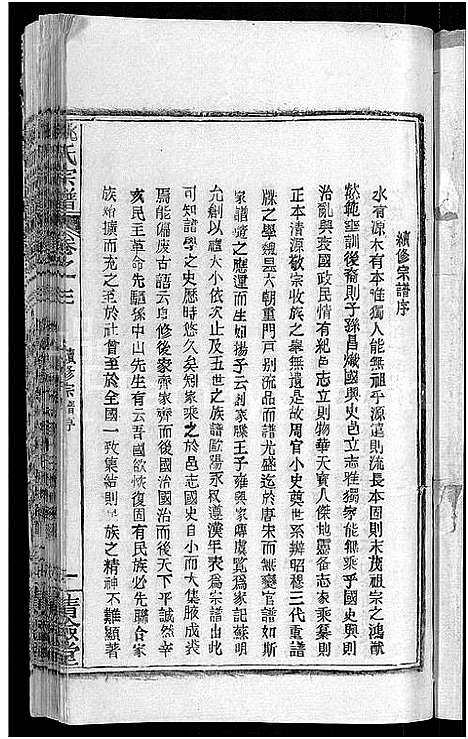 續修宗譜序
水有源木有本惟獨人能無祖乎源遠則流長本固則末茂祖宗之鴻猷
懿範垂訓後裔則子孫昌熾國興史邑立志惟獨家能無乘乎國史興則
治亂興衰國政民情有紀邑志立則物華天寶人傑地靈备志家乘纂則
正本清源敬宗收族之舉無遺是故周官小史奠世系辨昭穆三代重譜
牒之學魏晃六朝重門戸别流品而譜尤盛迄於唐宋而無變官譜如斯
家譜應之應還而生如揚子云剏家牒王子雍興家傳虞覧爲家記蘇明
允創以禮大小依次止及五世之族譜歐陽永叔遵漢年表爲宗譜由此
可知譜學之史歷時悠久矣知家乘之於邑志國史自小而大集腋成裘
焉能偏废古語云身修後家齊家齊而後國治國治而後天下平誠然辛
亥民主革命先驅孫中山先生有云吾國欲恢復固有民族必先聯合家
族始擴而充之至於社會至於全國一致集結則民族之精神不難顯著
姚氏宗譜
卷之一
續修宗譜序
一